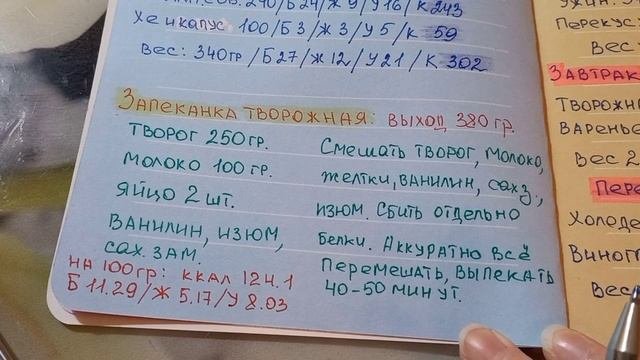 240/Б24/Ж9/У16/К 243
ХЕ И КАПУС 100/Б3/Ж3/У5/К 59
ВЕС: 340ГР/Б27/Ж12/У21/К 302
ЗАПЕКАНКА ТВОРОЖНАЯ: ВЫХОД 380 ГР.
ТВОРОГ 250ГР.
МОЛОКО 100 ГР.
ЯЙЦО 2 ШТ.
ВАНИЛИН, ИЗЮМ,
САХ. ЗАМ.
НА 100ГР: ККАЛ 124.1
Б 11.29/Ж 5.17/У 8.03
СМЕШАТЬ ТВОРОГ, МОЛОКО,
ЖЕЛТКИ, ВАНИЛИН, САХ З.,
ИЗЮМ. СБИТЬ ОТДЕЛЬНО
БЕЛКИ. АККУРАТНО ВСЁ
ПЕРЕМЕШАТЬ, ВЫПЕКАТЬ
40-50 МИНУТ.
ПЕРЕКУС
ВЕС
ЗАВТРАК
ТВОРОЖН
ВАРЕНЬЕ
ВЕС 2
ПЕРЕ
ХОЛОДЕ
ВИНОГР
ВЕС